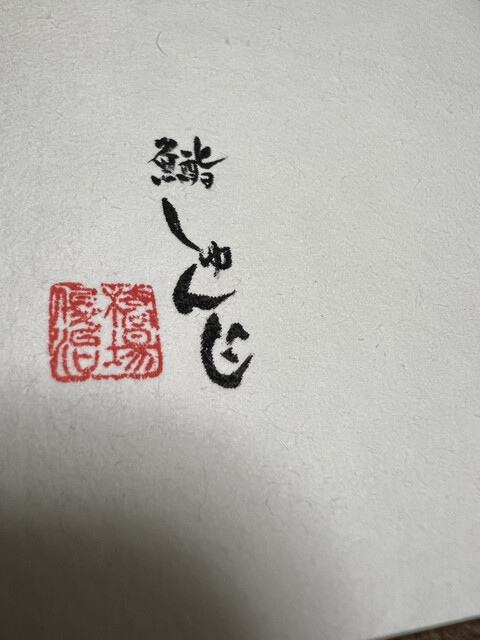 鮨しゅんじ
橋場
俊治